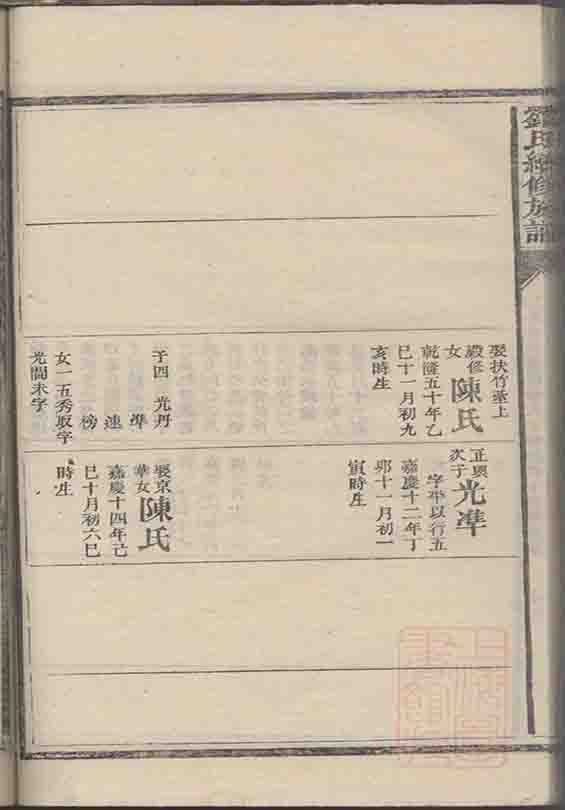 劉氏續修族譜
娶扶竹壷上
殿修
女
陳氏
乾隆五十年乙
巳十一月初九
亥時生
子四 光丹
準
速
榜
女一五秀取字
光閏未字
正興
次子
光準
字平以行五
嘉慶十二年丁
卯十一月初一
寅時生
娶京
華女
陳氏
嘉慶十四年己
巳十月初六巳
時生